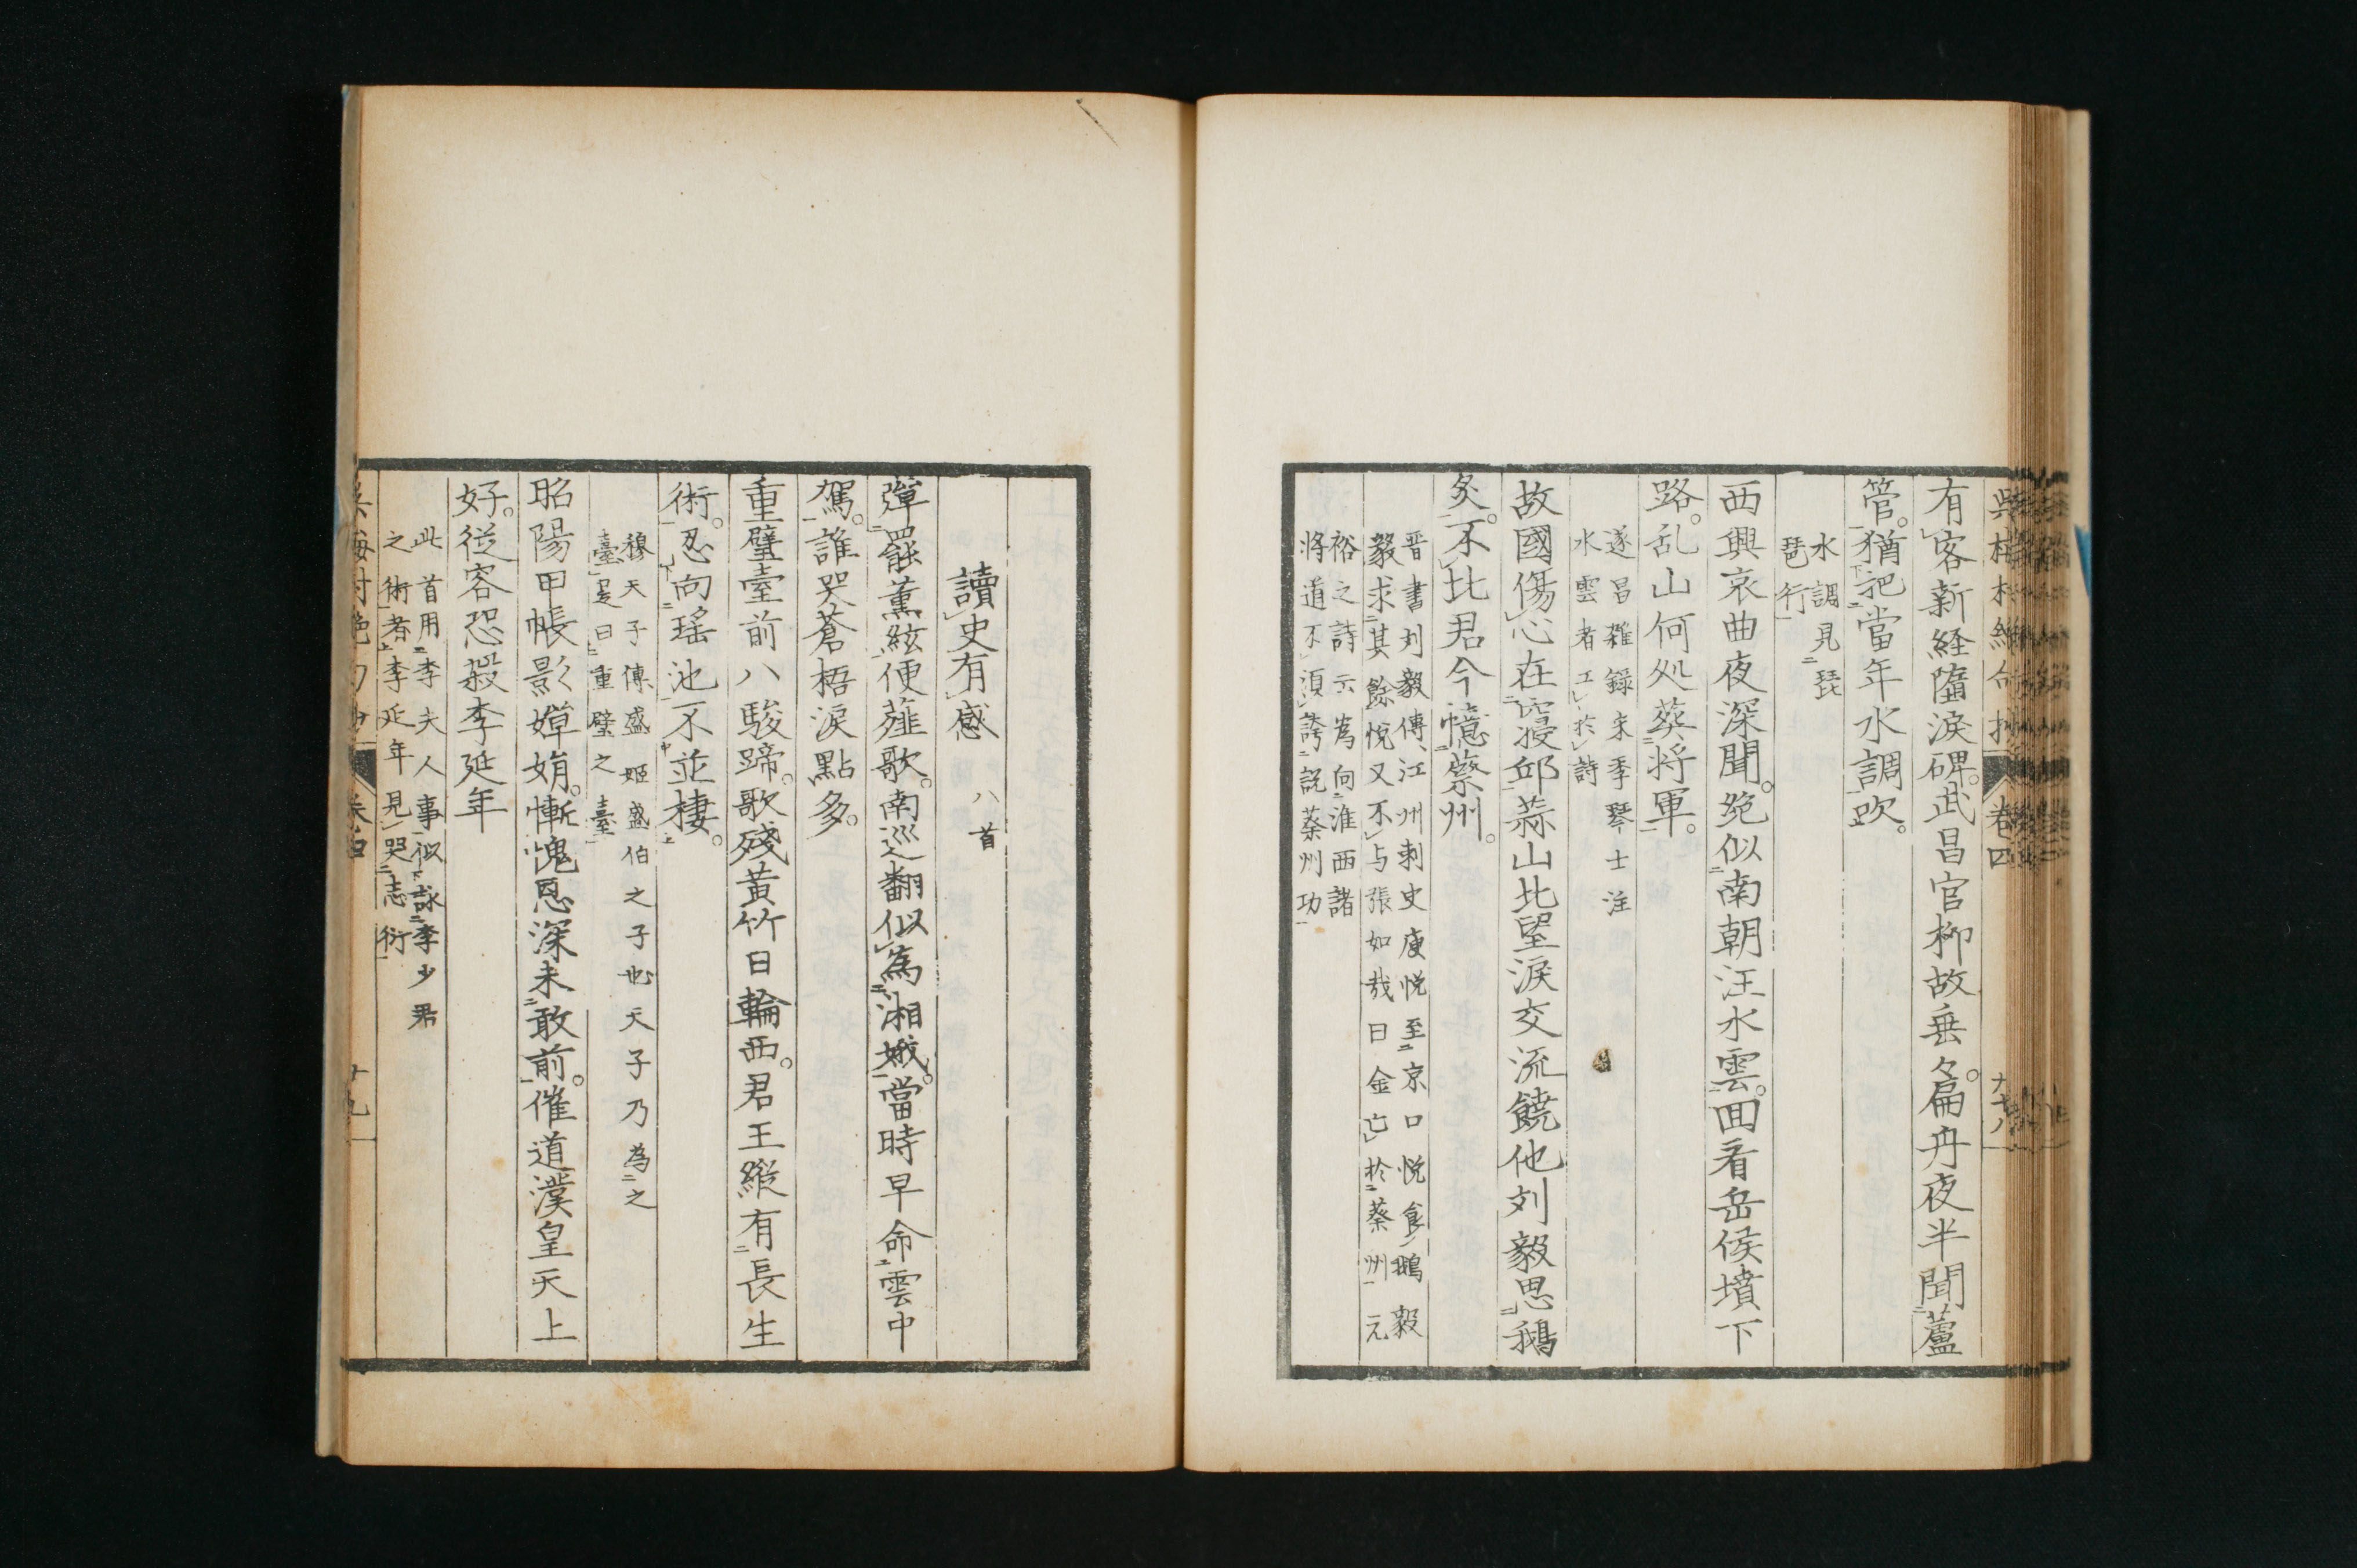 有客新経隨淚碑。武昌官柳故垂々。扁舟夜半聞蘆
管。猶把當年水調吹。
水調見琵
琶行
西興哀曲夜深聞。絶似南朝汪水雲。囬看岳侯墳下
路。乱山何処葬将軍。
遂昌雜録宋季琴士汪
水雲者工於詩
故國傷心在寢邱蒜山北望淚交流饒他刘毅思鵝
炙。不比君今憶蔡州。
晋書刘毅傳、江州刺史庾悦至京口悦食鵝毅
毅求其餘悦又不与張如哉曰金亡於蔡州元
裕之詩云為向淮西諸
将道不須誇説蔡州功
讀史有感
八首
彈罷薰絃便薤歌。南巡翻似為湘娥。當時早命雲中
駕。誰哭蒼梧淚點多。
重璧臺前八駿蹄。歌殘黃竹日輪西。君王縦有長生
術。忍向瑤池不並棲。
穆天子傳盛姫盛伯之子也天子乃為之
臺是曰重璧之臺
昭陽甲帳影嬋娟。慚愧恩深未敢前。催道漢皇天上
好。従容恐殺李延年
此首用李夫人事似詠李少君
之術者李延年見哭志衍
卷四
十九